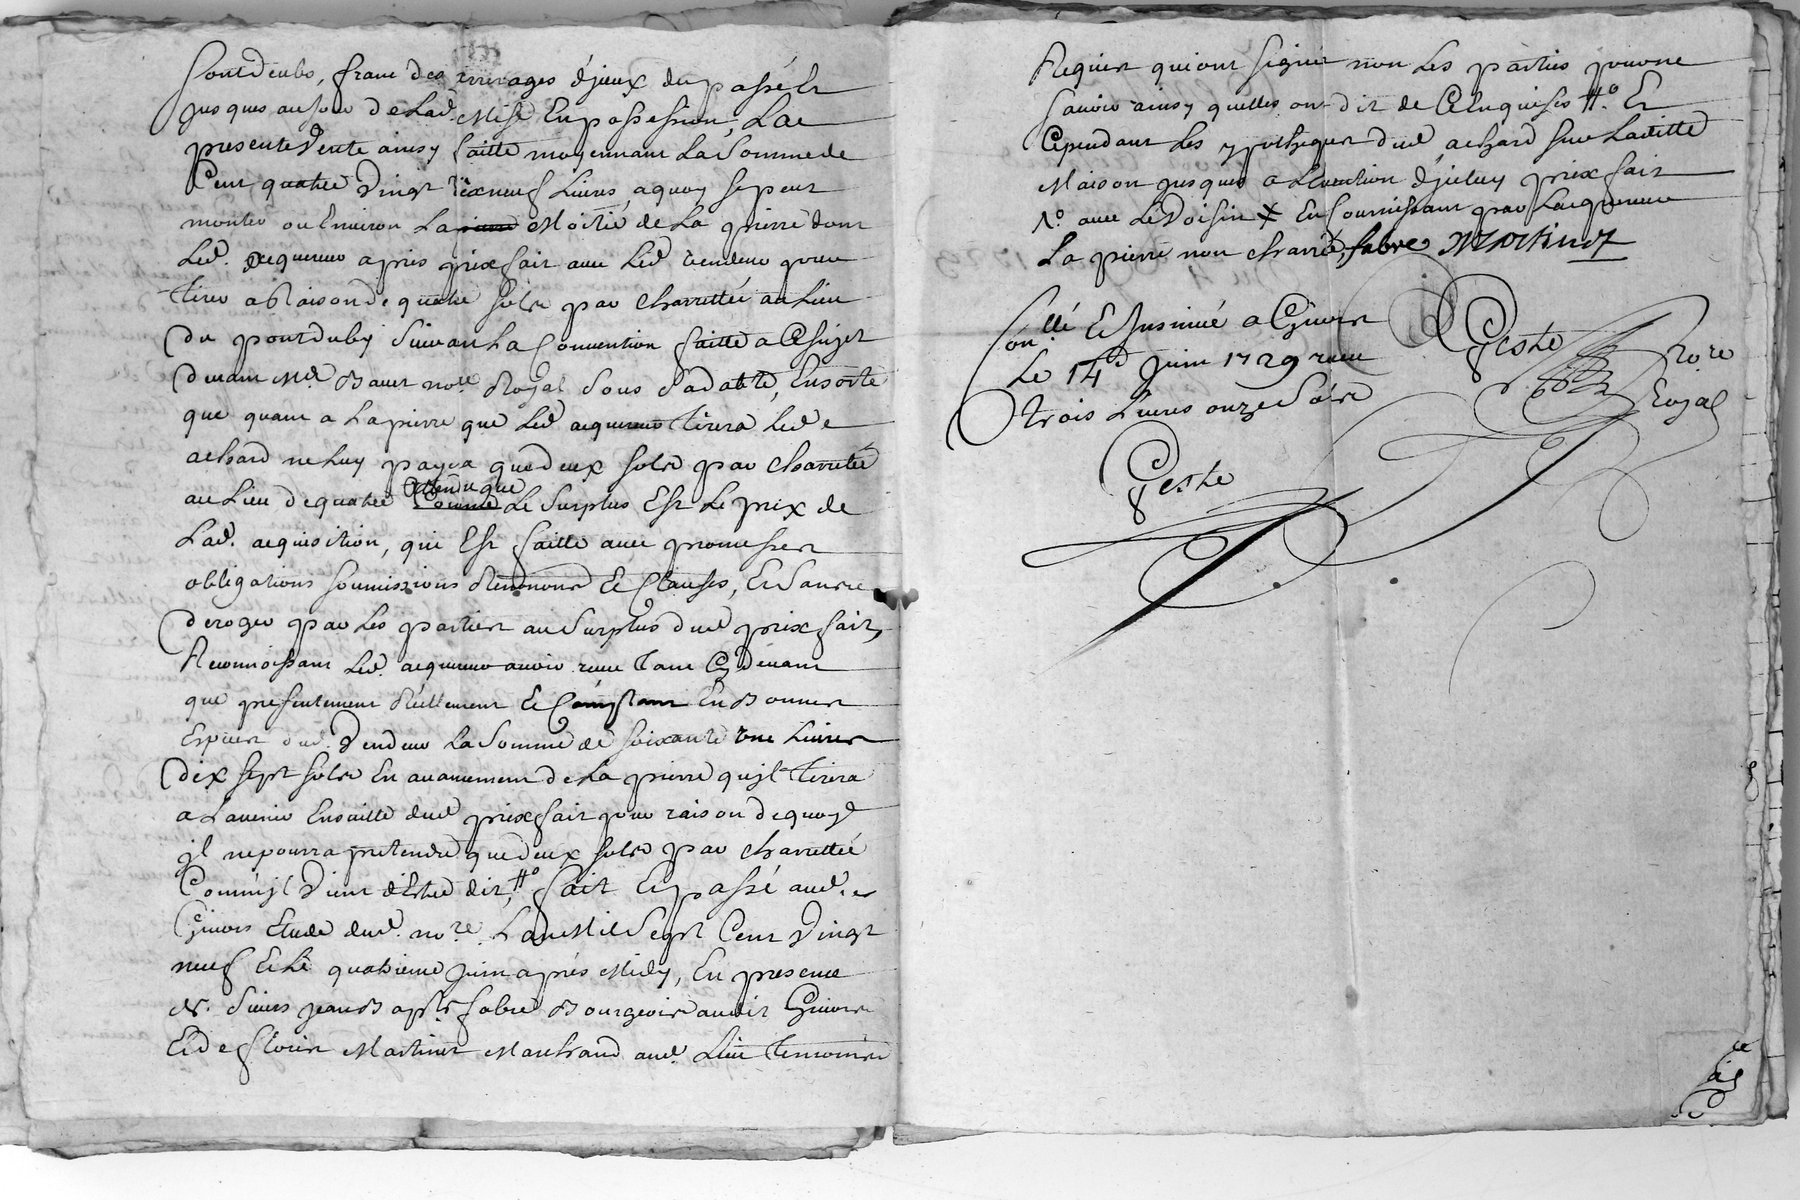 sont deubs, franc des arrerages d'jceux du passé et
jusques au jour de lad. Mise En possession, La
presente Vente ainsy faitte moyennant La Somme de
Cent quatre Vingt dixneuf Livres, a quoy se peut
monter ou Environ La Moitié de La pierre dont
Led. acquereur a pris prixfait avec Led vendeur pour
tirer a Raison de quatre sols par charrettée au Lieu
du pont Suivant La Convention faitte a Ce sujet
devant Me. not.re Royal Sous Sa datte, Ensorte
que quant a La pierre que Led acquereur tirera Led
achard ne Luy payera que deux sols par charrettée
au Lieu de quatre attendu que Le Surplus Est Le prix de
Lad. acquisition, qui Est faitte avec promesses
obligations soumissions Renonons Et Clauses, Et Sans
deroger par Les parties au Surplus dud prixfait,
Reconnoissant Led. acquereur avoir receu tant Cy devant
que presentement Réellement Et Comptant En Bonnes
Especes dud. Vendeur La Somme de soixante une Livres
dix sept sols En avancement de La pierre qu'jl tirera
a L'avenir Ensuitte dud prixfait pour raison de quoy
jl ne pourra pretendre que deux sols par charrettée
Comm'jl Vient d'Estre dit, fait Et passé aud.
Givors Etude dud. no.re L'an Mil Sept Cent Vingt
neuf Et Le quatrieme Juin aprés Midy, En presence
de Sieurs Jean Bapt.e fabre Bourgeois audit Givors
Et de Floris Martinot Marchand aud. Lieu temoins
Requis qui ont signé non Les parties pour ne
savoir ainsy quelles ont dit de Ce Enquises Et
Cependant Les ypotheques dud achard sur Laditte
Maison jusques a L'Execution d'jceluy prixfait
avec Le Voisin X En fournissant par L'acquereur
La pierre non charrié, fabre Martinot
Con.llé Et Insinué a Givors
Le 14e Juin 1729 receu
trois Livres onze Sols
Geste
Geste
No.re
Royal